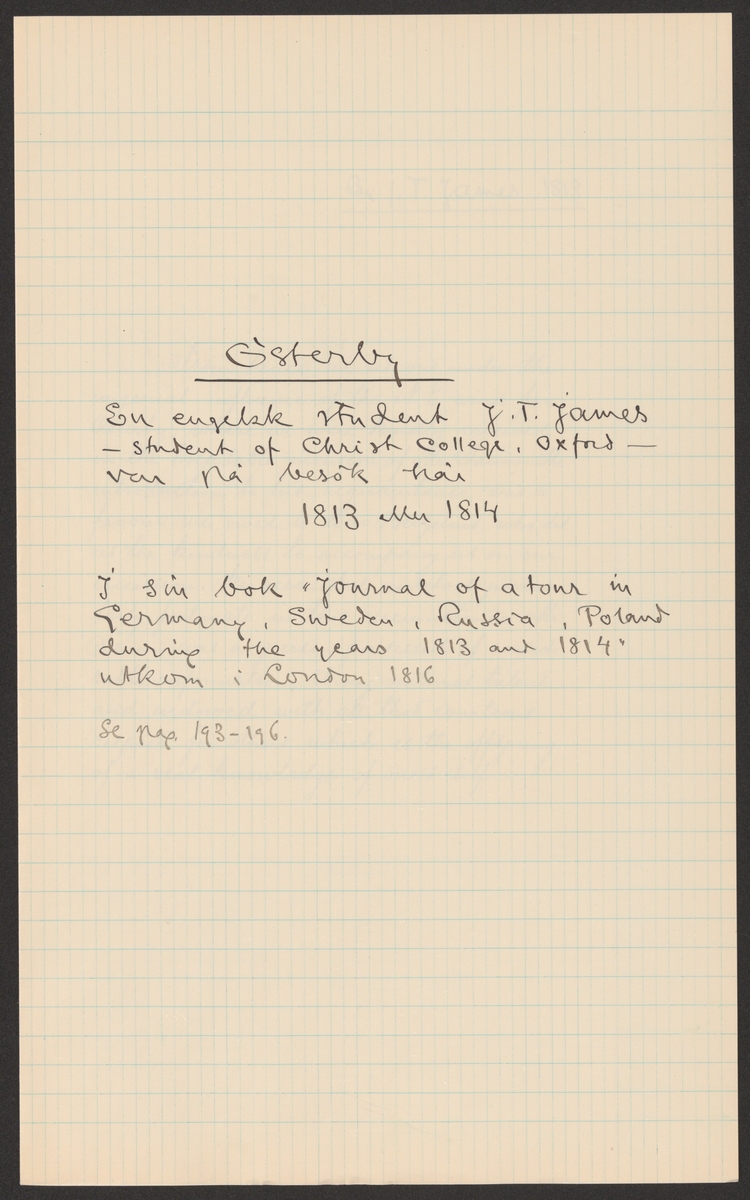 Österby
En engelsk student J.T. James
– student of Christ College, Oxford –
var på besök här
1813 eller 1814
I sin bok "Journal of a tour in
Germany, Sweden, Russia, Poland
during the years 1813 and 1814"
utkom i London 1816
Se pag. 193-196.